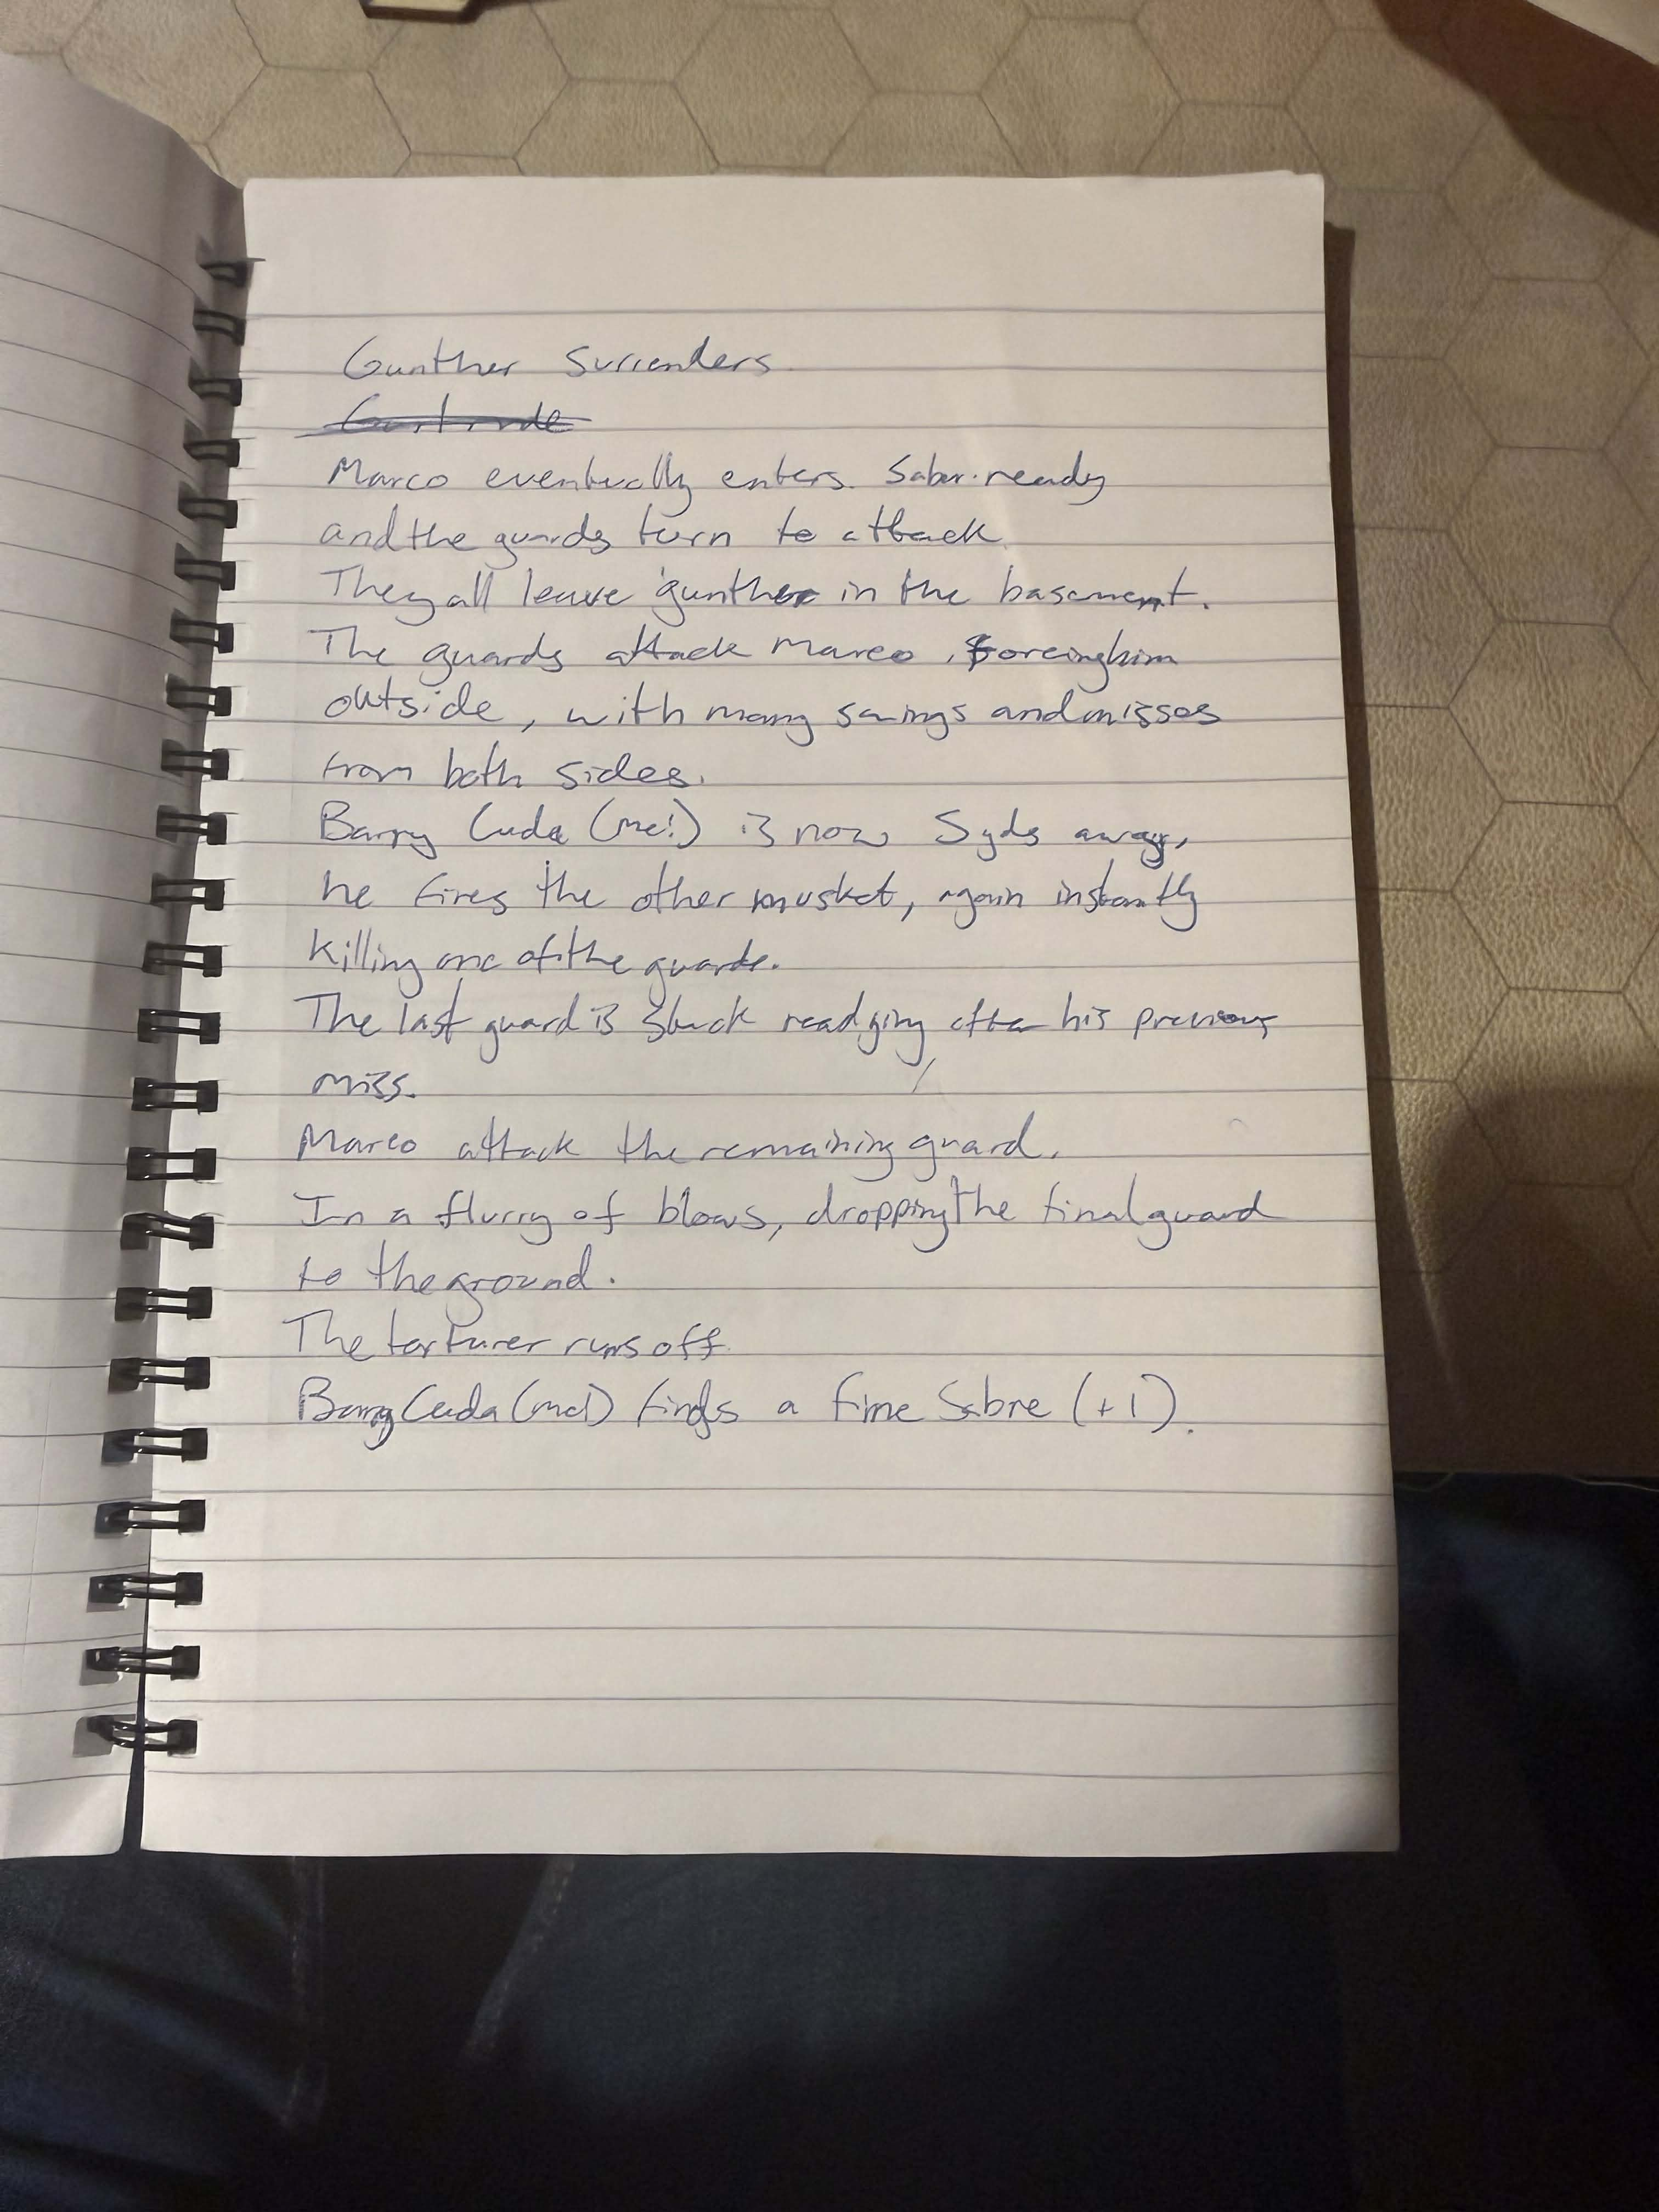 Gunther Surrenders
Gertrude
Marco eventually enters. Saber ready
and the guards turn to attack.
They all leave gunther in the basement.
The guards attack Marco, forcing him
outside, with many swings and misses
from both sides.
Barry Cuda (me!) is now 5yds away,
he fires the other musket, again instantly
killing one of the guards.
The last guard is stuck readying after his previous
miss.
Marco attack the remaining guard.
In a flurry of blows, dropping the final guard
to the ground.
The torturer runs off.
Barry Cuda (me!) finds a fine Sabre (+1).